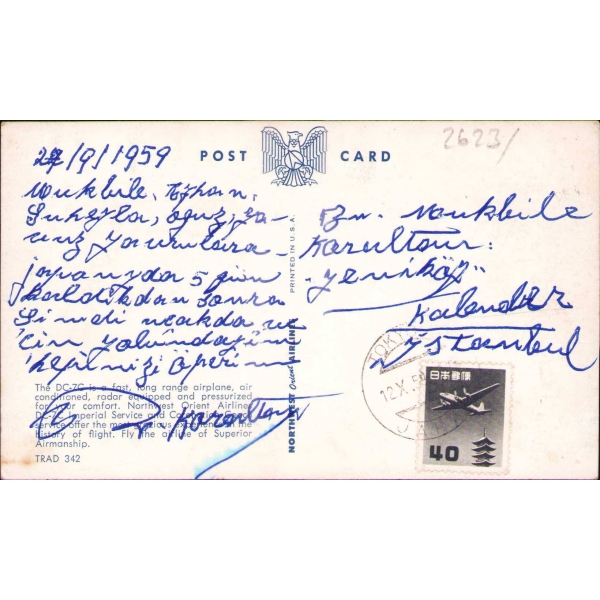 2623/
POST CARD
/9/1959
Mukbile,
Süheyla, Oğuz,
yavrulara
Japanyada 5 gün
kaldıkdan sonra
Şimdi uçakda
için
hepinizi öperim
The DC-7C is a fast, long range airplane, air
conditioned, radar equipped and pressurized
for your comfort. Northwest Orient Airlines
DC-7C Imperial Service and
service offer the most
history of flight. Fly the airline of Superior
Airmanship.
TRAD 342
PRINTED IN U.S.A.
NORTHWEST Orient AIRLINES
Bn. Mukbile
Yeniköy
Kalender
İstanbul
TOKYO
12.X.59
日本郵便
40